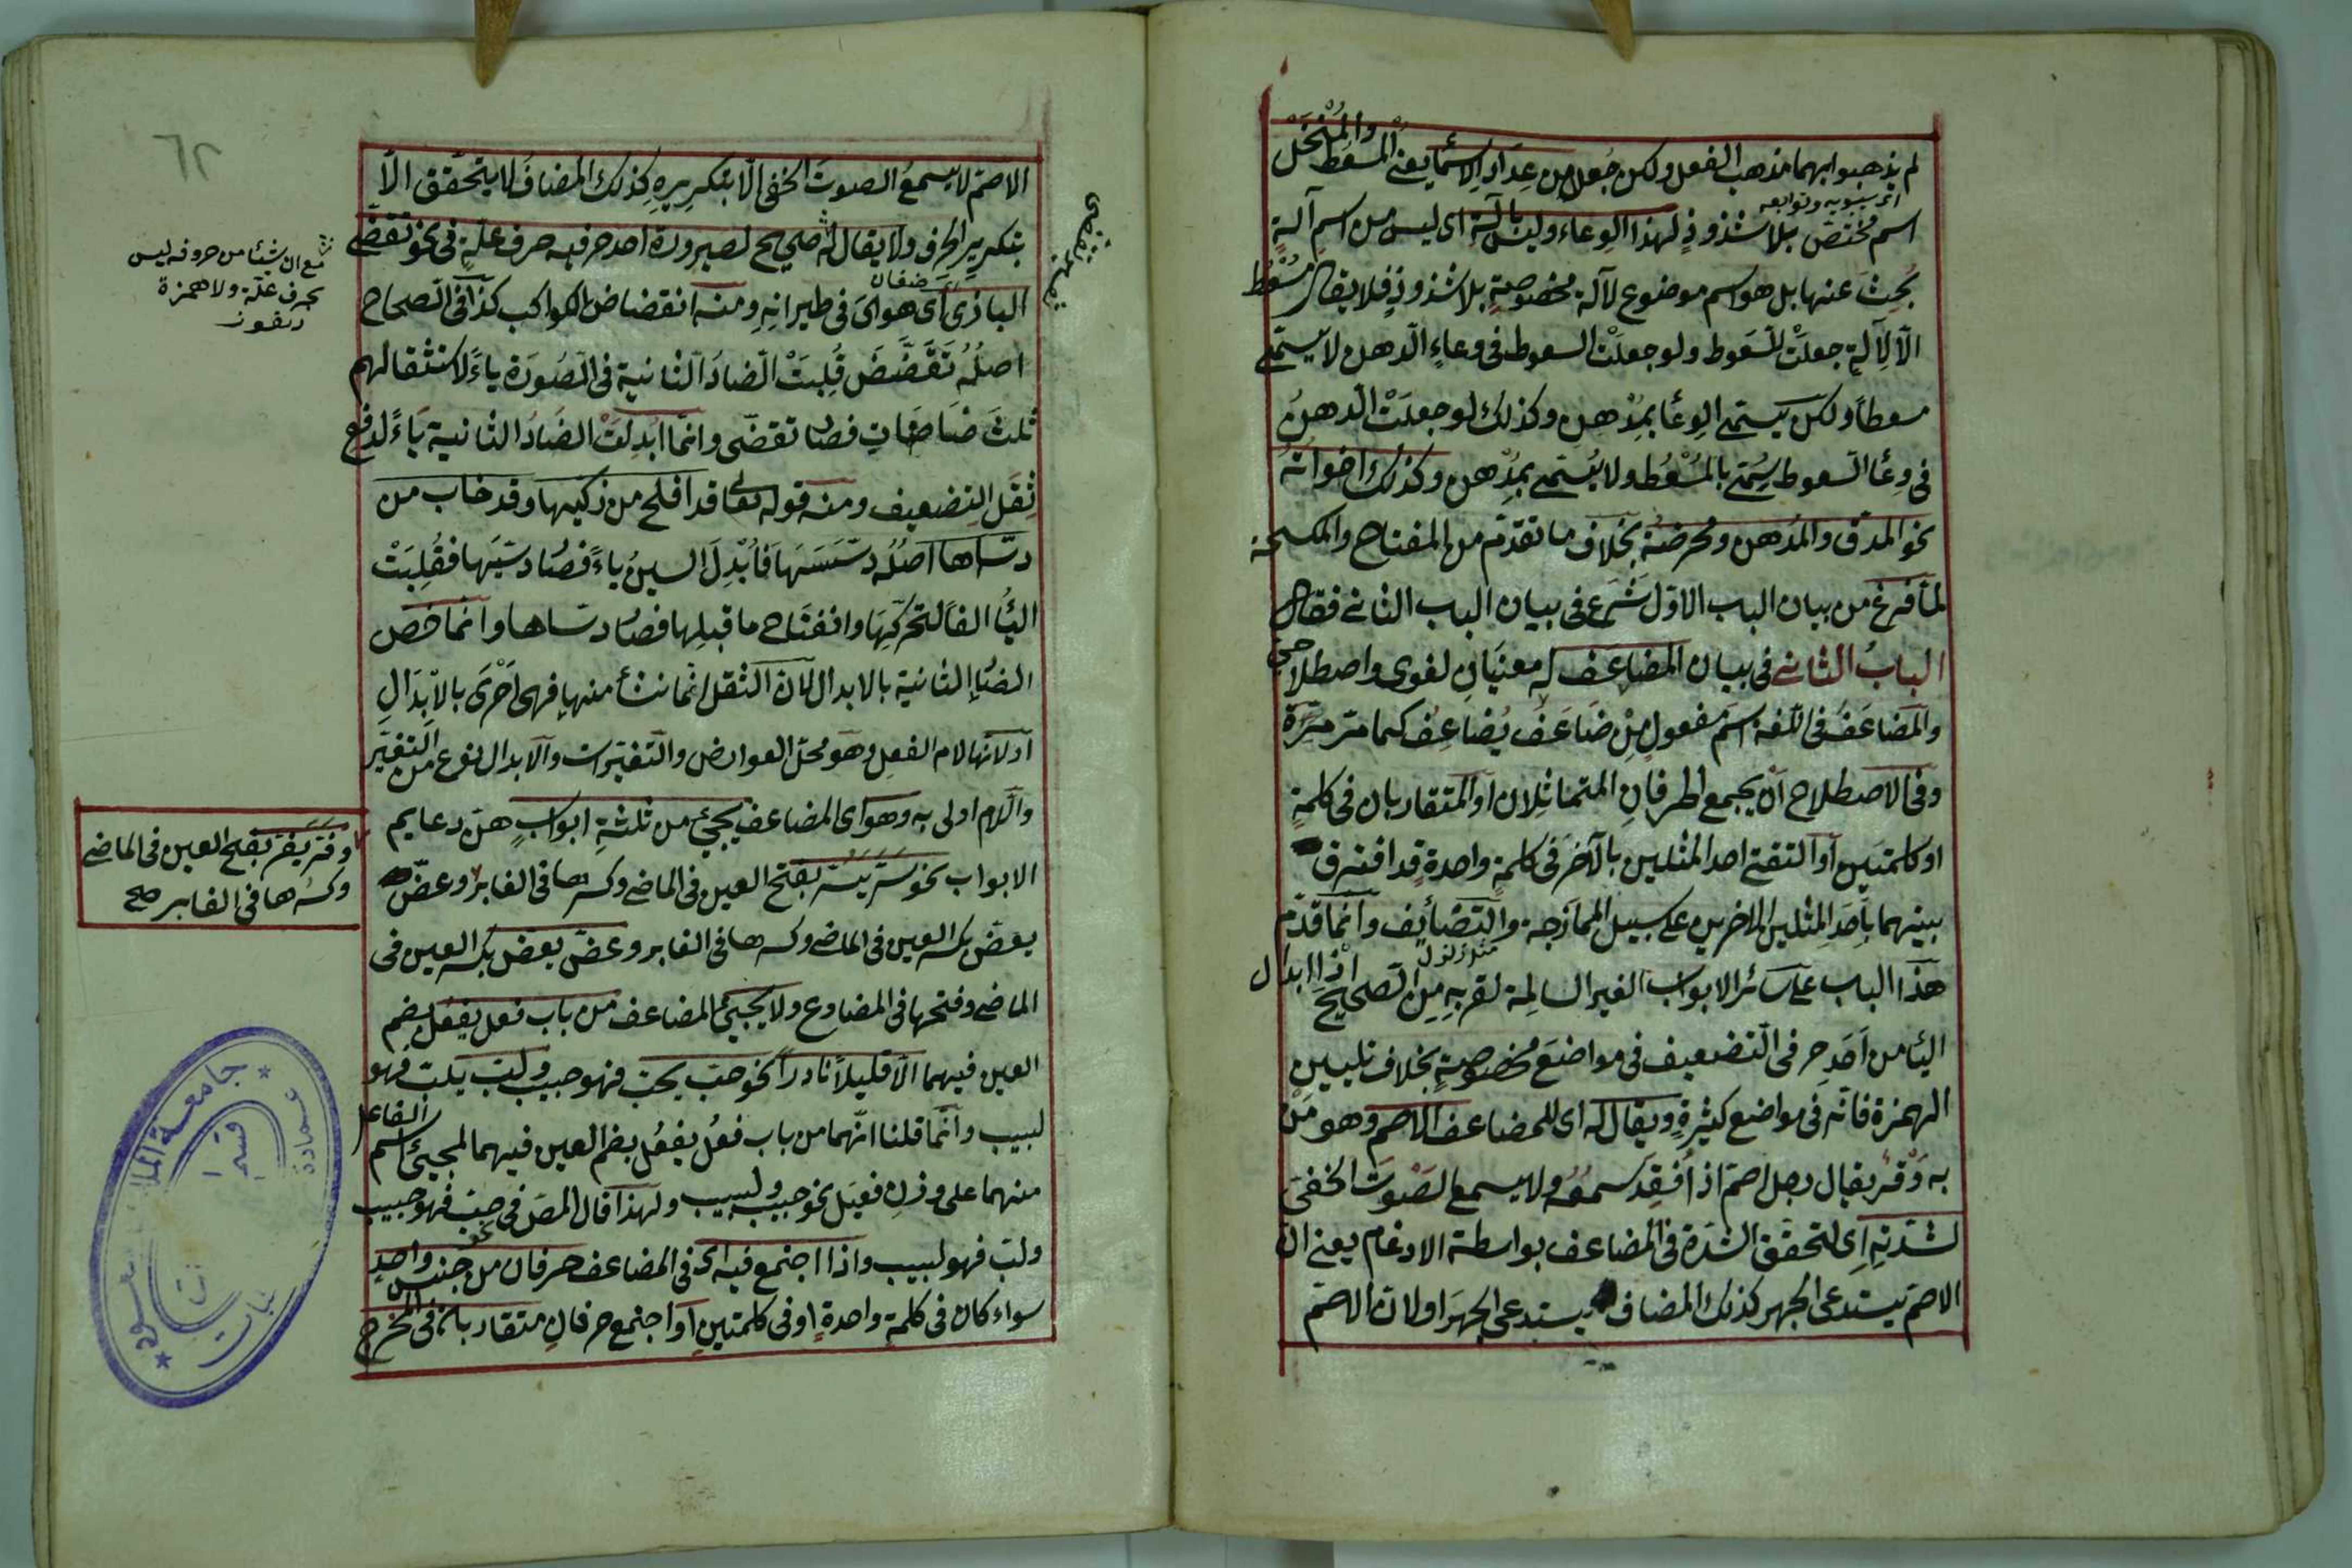 لم يذهبوا بهما مذهب الفعل ولكن جُعل من عِدَادِ الاسمآ يعنى المُسعُط والمُنْخُل
اى سيبويه وتوابعه
اسم مختصّ بلا شذوذٍ لهذا الوِعاء وليس بآلةٍ اى ليس من اسم آلةٍ
بُحِثَ عنها بل هو اسم موضوع لآلة مخصوصةٍ بلا شذوذٍ فلا يقال مُسْعُط
الّا لِآلةٍ جعلَتْ للسَعوط ولو جعلَتْ السعوط فى وعاءِ الدهن لا يسمّى
مسعطاً ولكن يسمّى الوِعآ بمُدْهن وكذلك لو جعلَتْ الدهنُ
فى وِعآ السعوط يُسمّى بالمُسْعُط ولا يُسمّى بمُدْهن وكذلك اخواتهُ
نحو المدقّ والمُدهن ومحرضة بخلاف ما تقدّم من المفتاح والمكسحة
لمّا فرغ من بيان الباب الاوّل شَرَع فى بيان الباب الثانى فقال
البابُ الثانى فى بيان المضاعف له معنيَانِ لغوى واصطلاحى
والمضاعَفُ فى اللّغة اسم مفعولٍ مِنْ ضَاعَفَ يُضاعِفُ كما مرّ مرّةً
وفى الاصطلاح انْ يجمع الحرفانِ المتماثِلان او المتقاربان فى كلمةٍ
او كلمتين او التقتى احد المثلين بالآخر فى كلمةٍ واحدةٍ قد افترق
بينهما باَحَدِ المثلين الاخرين على سبيل الممازجة والتضائف وانّما قدّم
مثل زلزل
هذا الباب على سائر الابواب الغير السالمة لقربِهِ مِن الصحيح اذا ابدال
اليآ من اَحَدِ حرفى التضعيف فى مواضعَ مخصوصةٍ بخلاف تليين
الهمزة فانّه فى مواضع كثيرةٍ ويقال له اى للمضاعف الاصم وهو مَنْ
به وَقْرٌ يقال رجل اصمّ اذا فُقِدَ سمعُه ولا يسمع الصَوْتَ الخفىَّ
لشدّتِه اى لتحقق الشدّة فى المضاعف بواسطة الادغام يعنى انّ
الاصمّ يستدعى الجهر كذلك المضاف يستدعى الجهرَ او لانّ الاصمّ
٦٢
الاصمّ لا يسمعُ الصوتَ الخفى الّا بتكريرِهِ كذلك المضاف لا يتحقّق الّا
بتكرير الحرف ولا يقال له صحيح لصيرورة احد حرفيه حرف علّةٍ فى نحو تقضّى
البازى اى هوىَ فى طيرانِهِ ومنه انقضاض الكواكب كذا فى الصحاح
اصلُهُ تَقَضَّضَ قُلِبَتْ الضادُ الثانية فى الصُورَة ياءً لاستثقالهم
ثلثَ ضاضاتٍ فصار تقضّى وانّما ابْدِلَتْ الضادُ الثانية ياءً لدفعِ
ثِقَل التضعيف ومنه قوله تعالى قد افلح من زكيها وقد خاب من
دسّاها اصلُه دسّسَهَا فَاُبْدِلَ السينُ ياءً فصار دسّيَها فقُلِبَتْ
اليآ الفا لتحرّكِهَا وانفتاح ما قبلها فصار دسّاها وانّما خصّ
الضّا الثانية بالابدال لانّ الثقل انّما نشأ منها فهى اَحْرَى بالابدَالِ
او لانّها لام الفعل وهو محلّ العوارض والتغيّرات والابدال نوع من التغيّر
واللّام اولى به وهو اى المضاعف يجيئ من ثلثةِ ابوابٍ هنّ دعايم
الابواب نحو سَرَّ يَسُرّ بفتح العين فى الماضى وكسرها فى الغابر وعضّ
يعضّ بكسر العين فى الماضى وكسرها فى الغابر وعضّ يعضّ بكسر العين فى
الماضى وفتحها فى المضارع ولا يجيئ المضاعف من باب فعل يفعُل بضم
العين فيهما الّا قليلاً نادراً نحو حبّ يحبّ فهو حبيب ولبّ يلبّ فهو
لبيب وانّما قلنا انّهما من باب فعُل يفعُل بضم العين فيهما لمجيئ اسم الفاعل
منهما على وزنِ فعيل نحو حبيب ولبيب ولهذا قال المصَ فى حبّ فهو حبيب
ولبّ فهو لبيب واذا اجتمع فيه اى فى المضاعف حرفان من جنس واحدٍ
سواء كان فى كلمةٍ واحدةٍ او فى كلمتين او اجتمع حرفانِ متقاربان فى المخرج
مع ان شيئا من حروفه ليس
بحرف علّة ولا همزة
وفرّ يفرّ بفتح العين فى الماضى
وكسرها فى الغابر صح
جامعة
عمادة
قسم